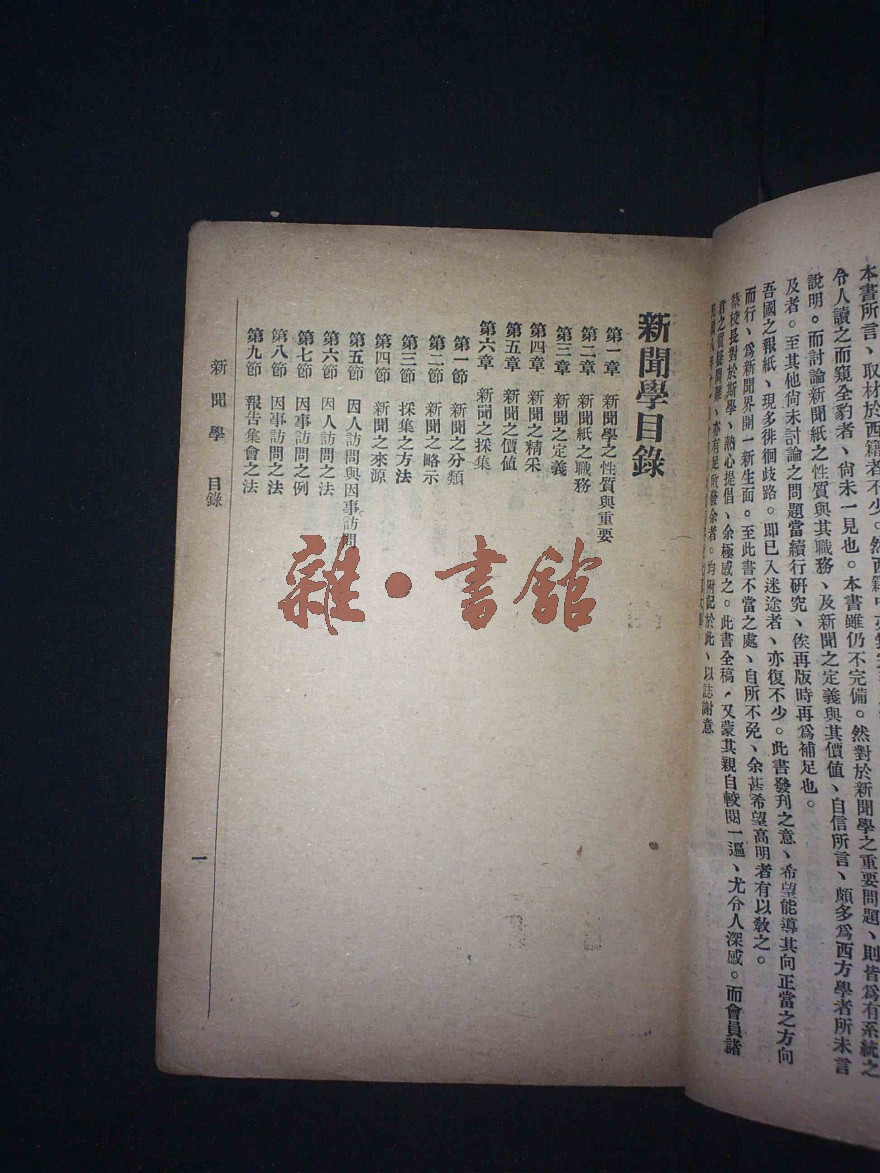 本書所言、取材於西籍者不少。然西籍中
令人讀之而窺全豹者、尙未一見也。本書雖仍不完備。然對於新聞學之重要問題、則皆爲有系統之
說明。而討論新聞紙之性質與其職務、及新聞之定義與其價值、自信所言、頗多爲西方學者所未言
及者。至其他尙未討論之問題當續行硏究、俟再版時再爲補足也。
吾國之報紙、現多徘徊歧路。即已入迷途者、亦復不少。此書發刊之意、希望能導其向正當之方向
而行、爲新聞界開一新生面。至此書不當之處、自所不免、余甚希望高明者有以敎之。
蔡校長對於斯學、熱心提倡、余極感之。此書全稿、又蒙其親自較閱一遍、尤令人深感。而會員諸
君之質疑問難、亦有足啟發余者。均附記於此、以誌謝意
新聞學目錄
第一章 新聞學之性質與重要
第二章 新聞紙之職務
第三章 新聞之定義
第四章 新聞之精采
第五章 新聞之價值
第六章 新聞之採集
第一節 新聞之分類
第二節 新聞之略示
第三節 採集之方法
第四節 新聞之來源
第五節 因人訪問與因事訪問
第六節 因人訪問之法
第七節 因事訪問之例
第八節 因事訪問之法
第九節 報告集會之法
新聞學 目錄
一
雜·書館